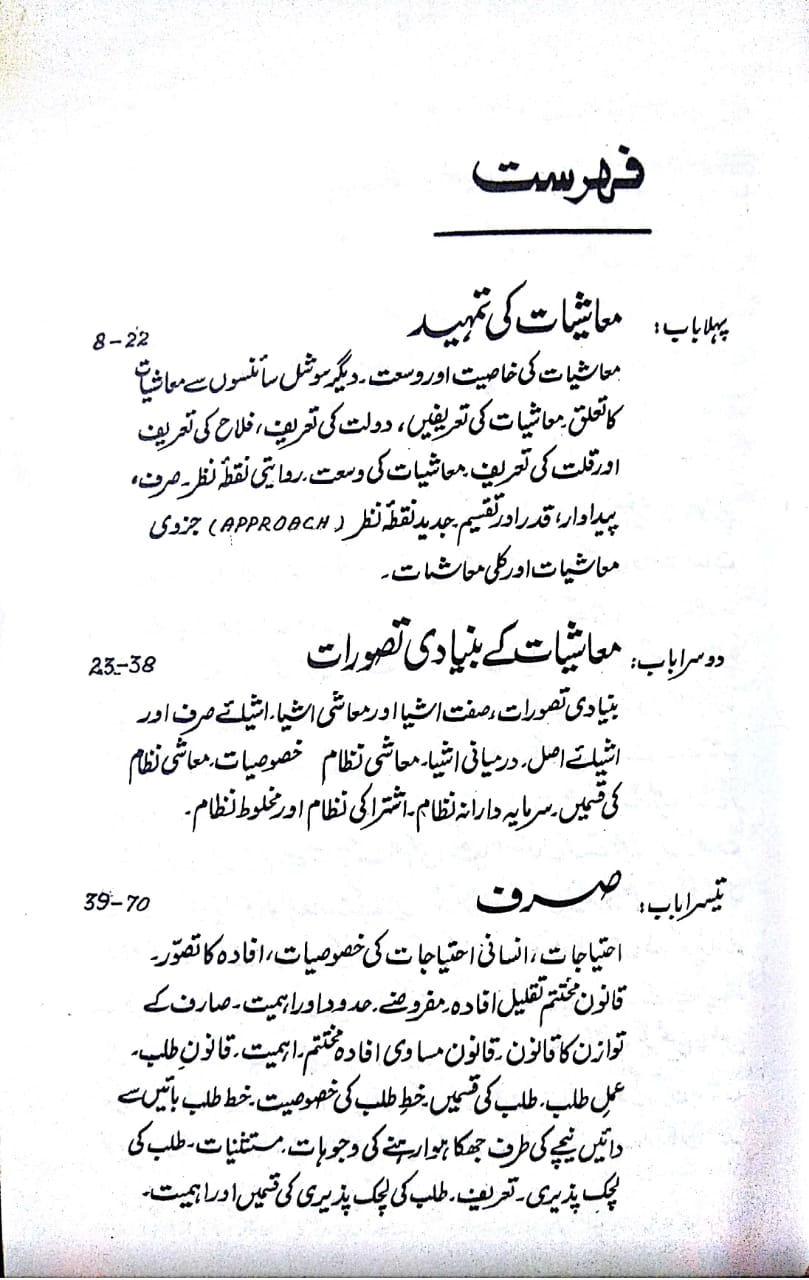 فہرست
پہلا باب: معاشیات کی تمہید 8-22
معاشیات کی خاصیت اور وسعت۔ دیگر سوشل سائنسوں سے معاشیات
کا تعلق۔ معاشیات کی تعریفیں، دولت کی تعریف، فلاح کی تعریف
اور قلت کی تعریف۔ معاشیات کی وسعت۔ روایتی نقطۂ نظر۔ صرف،
پیداوار، قدر اور تقسیم۔ جدید نقطۂ نظر (APPROACH) جزوی
معاشیات اور کلی معاشیات۔
دوسرا باب: معاشیات کے بنیادی تصورات 23-38
بنیادی تصورات، صفت اشیا اور معاشی اشیا۔ اشیائے صرف اور
اشیائے اصل۔ درمیانی اشیا۔ معاشی نظام خصوصیات۔ معاشی نظام
کی قسمیں۔ سرمایہ دارانہ نظام۔ اشتراکی نظام اور مخلوط نظام۔
تیسرا باب: صرف 39-70
احتیاجات، انسانی احتیاجات کی خصوصیات، افادہ کا تصوّر۔
قانون مختتم تقلیل افادہ۔ مفروضے۔ حدود اور اہمیت۔ صارف کے
توازن کا قانون۔ قانون مساوی افادہ مختتم۔ اہمیت۔ قانونِ طلب۔
عملِ طلب۔ طلب کی قسمیں۔ خطِ طلب کی خصوصیت۔ خط طلب بائیں سے
دائیں نیچے کی طرف جھکا ہوا رہنے کی وجوہات۔ مستثنیات۔ طلب کی
لچک پذیری۔ تعریف۔ طلب کی لچک پذیری کی قسمیں اور اہمیت۔